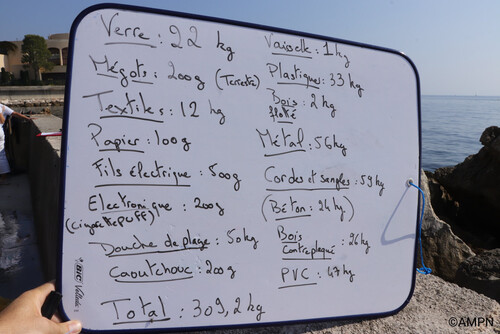 Verre : 22 kg
Mégots : 200g (Terrestre)
Textiles : 12 kg
Papier : 100g
Fils électrique : 500g
Electronique : 200g
(cigarette PUFF)
Douche de plage : 50kg
Caoutchouc : 200g
Total : 309,2 kg
Vaisselle : 1kg
Plastiques : 33 kg
Bois : 2 kg
flotté
Métal : 56kg
Cordes et semples : 59kg
(Béton : 24 kg)
Bois : 26kg
Contreplaqué
PVC : 47kg
BIC Velleda
©AMPN